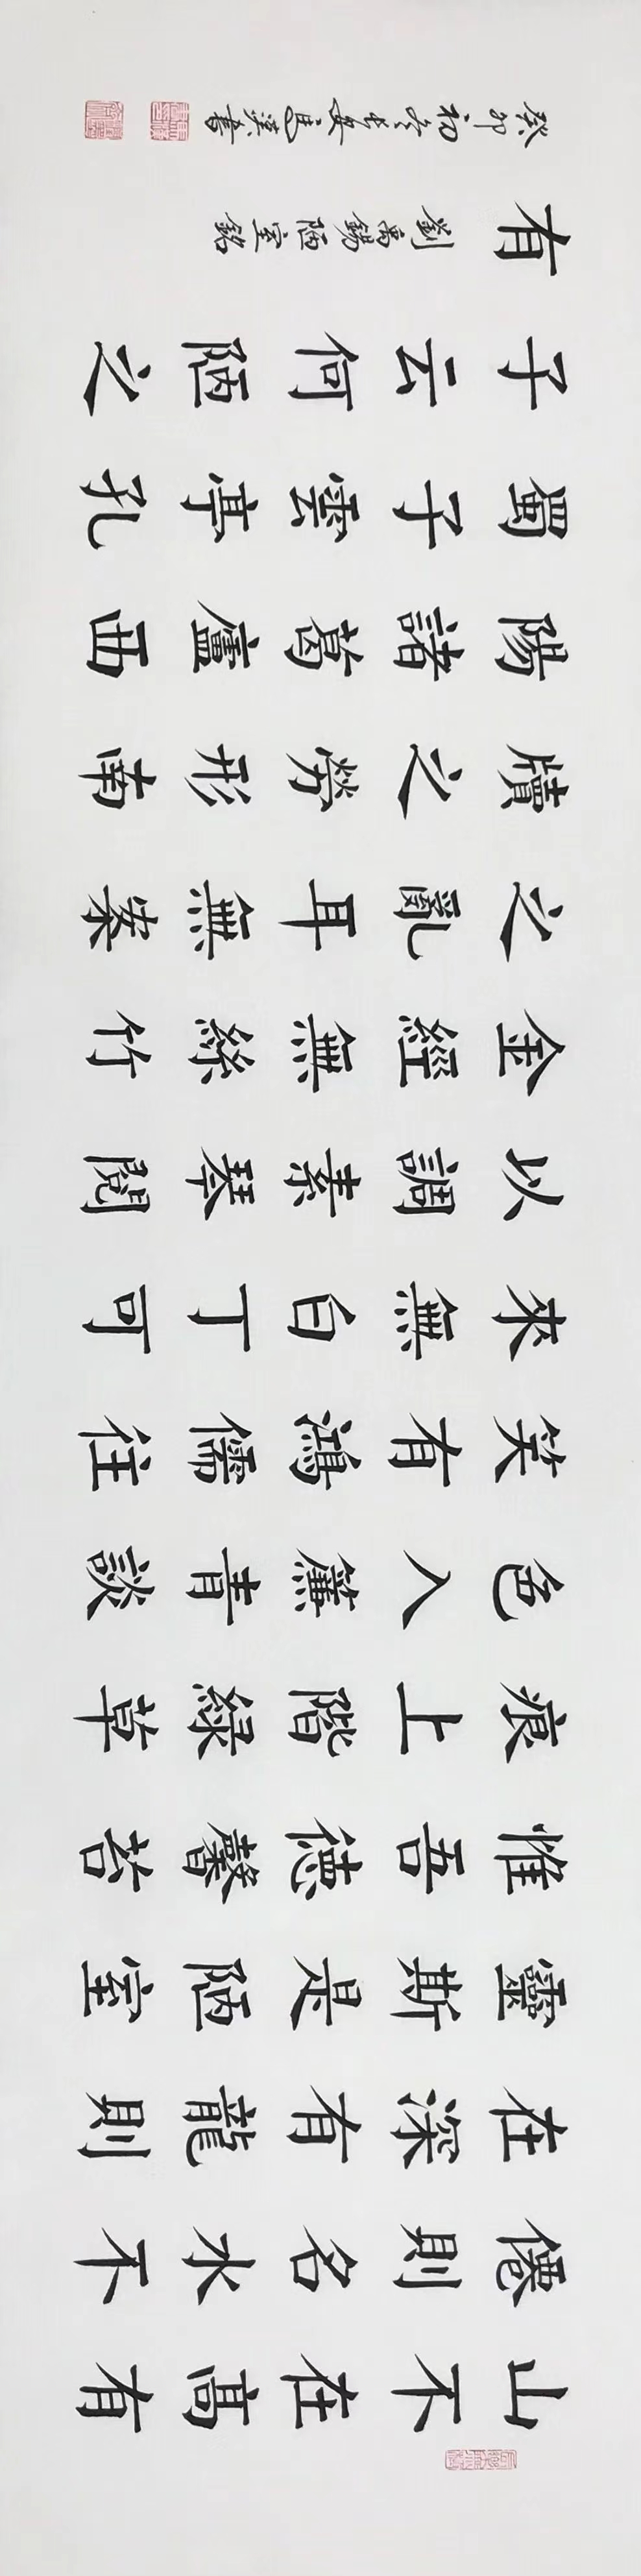 山不在高有
僊則名水不
在深有龍則
靈斯是陋室
惟吾德馨苔
痕上階綠草
色入簾青談
笑有鴻儒往
來無白丁可
以調素琴閱
金經無絲竹
之亂耳無案
牘之勞形南
陽諸葛廬西
蜀子雲亭孔
子云何陋之
有 劉禹錫陋室銘
癸卯初冬長安馬漢書